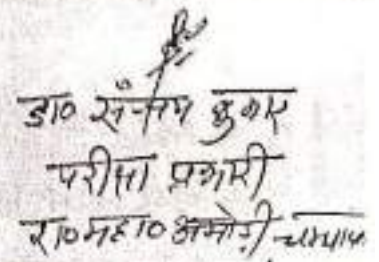 डा० संजय कुमार
परीक्षा प्रभारी
रा०महा० अमोड़ी चम्पावत